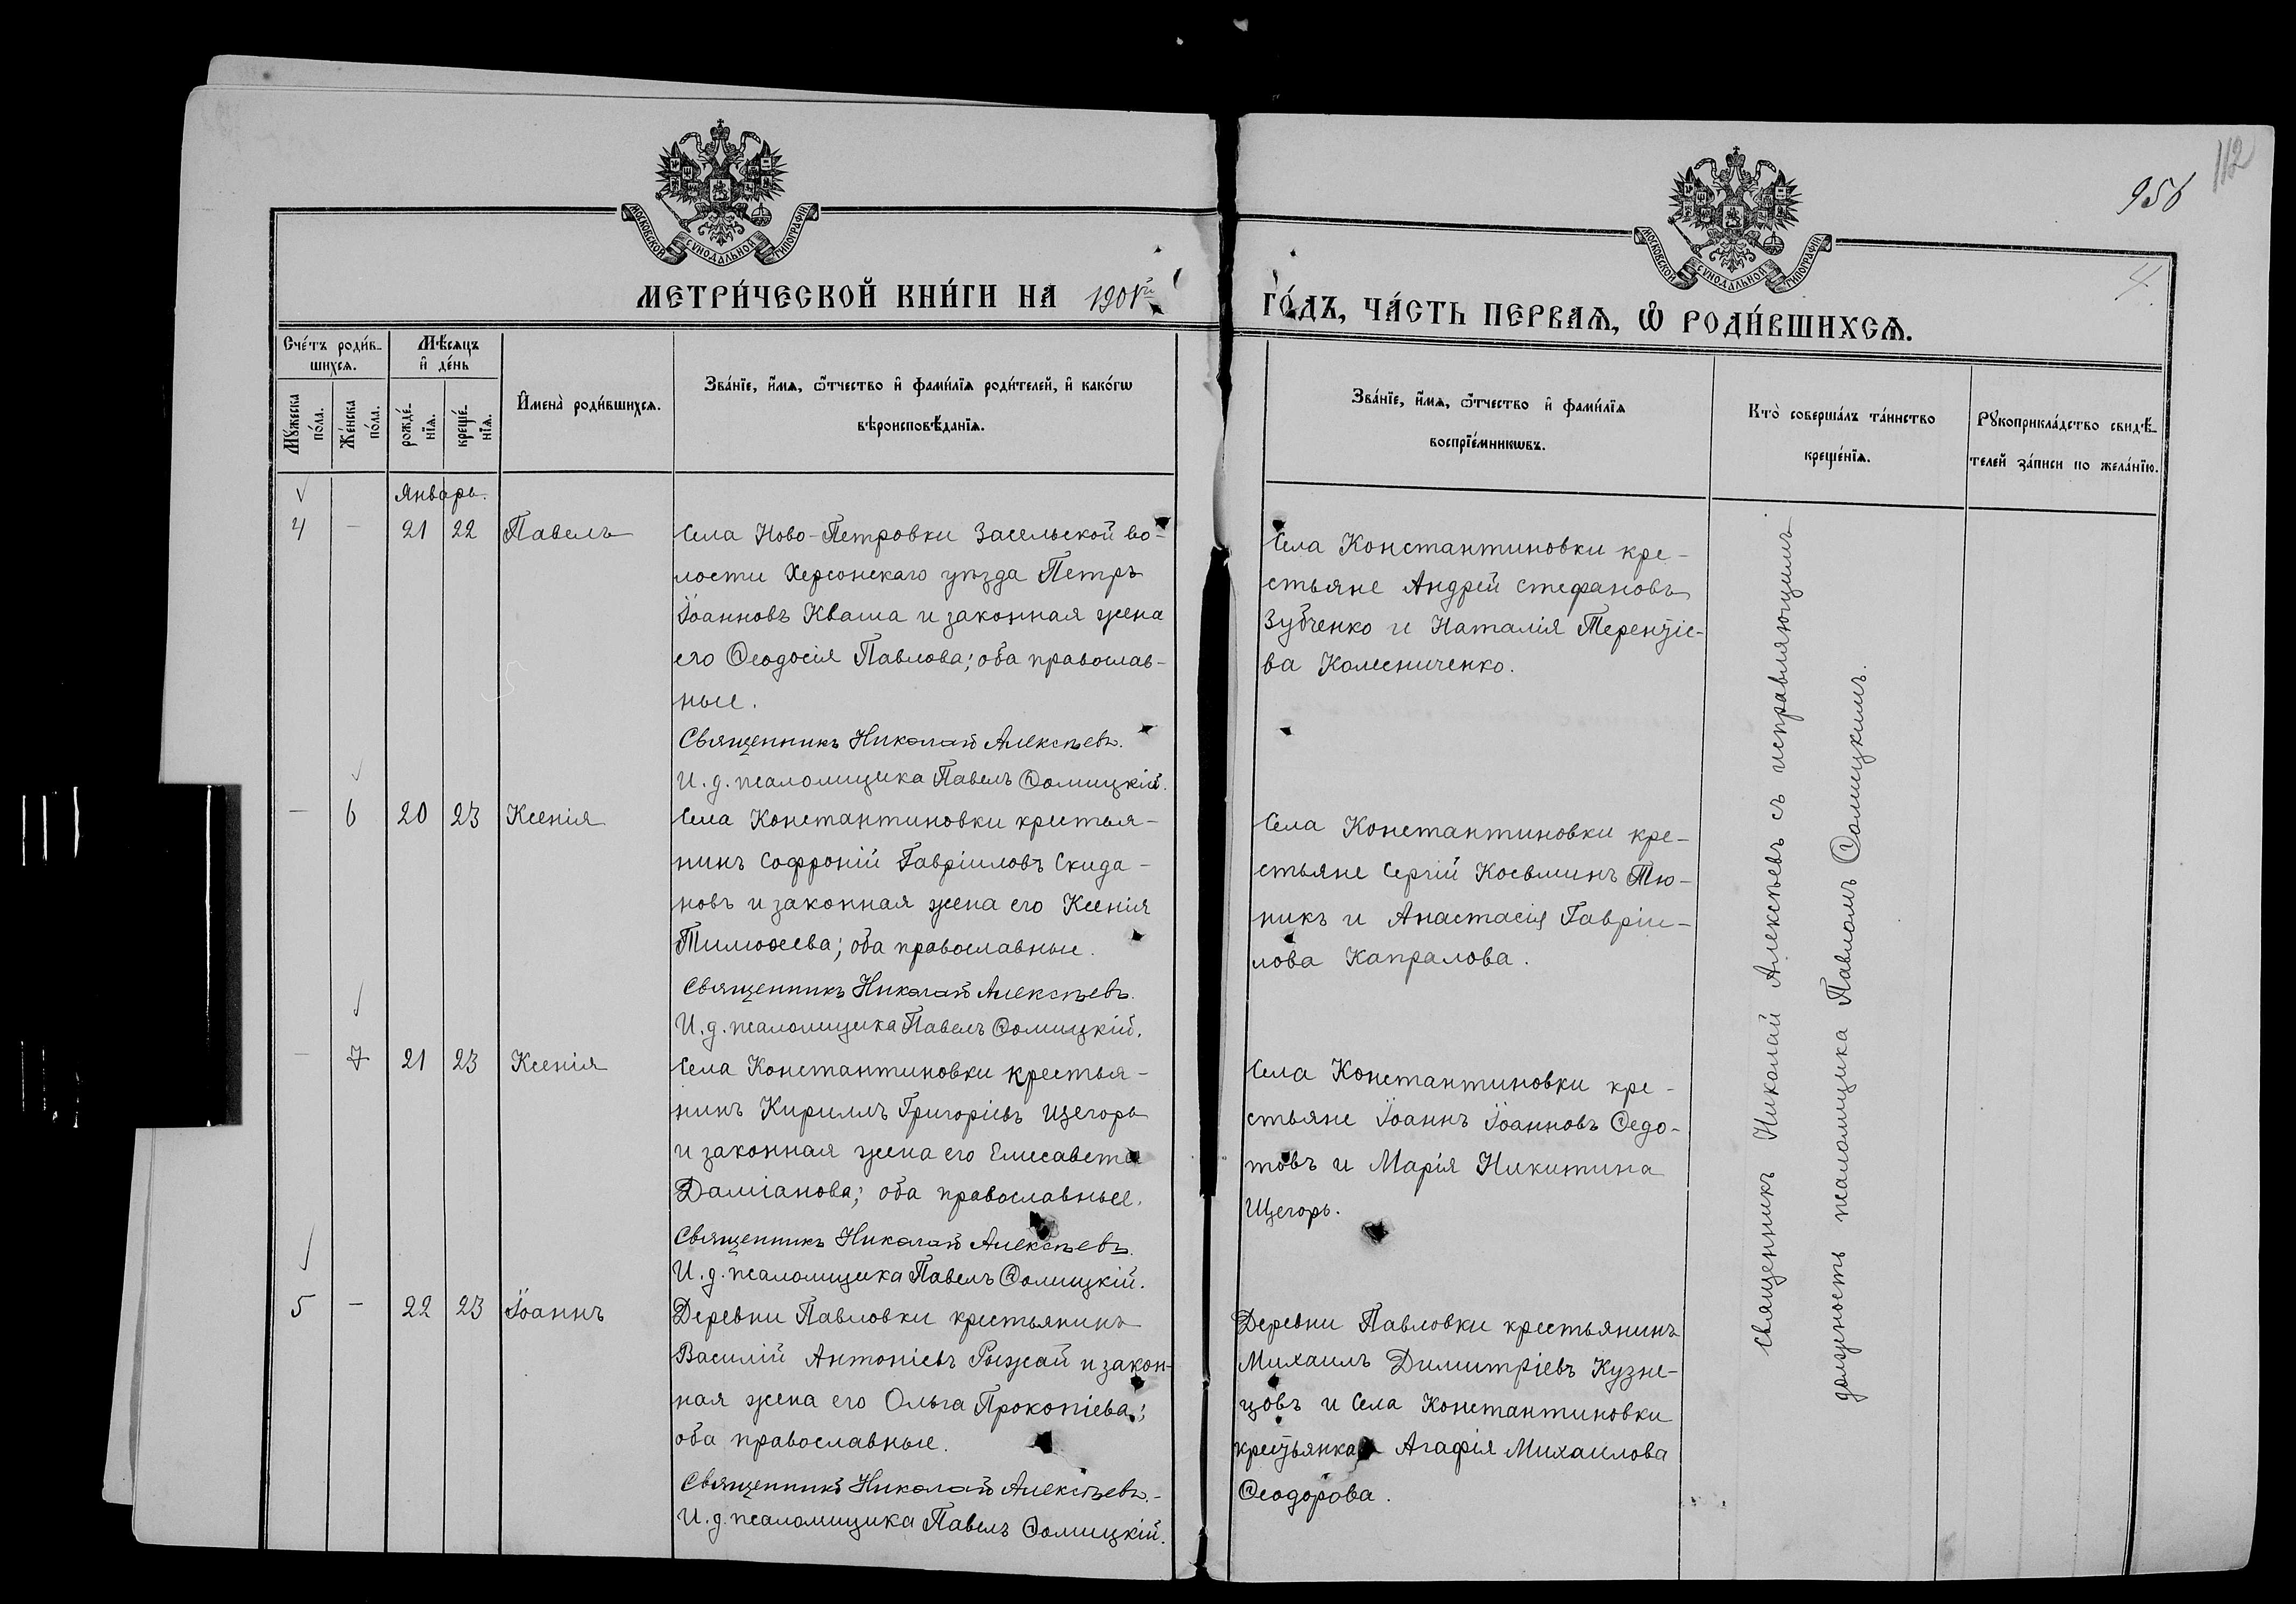 112
956
4
МОСКОВСКОЙ СѴНОДАЛЬНОЙ ТИПОГРАФІИ
МОСКОВСКОЙ СѴНОДАЛЬНОЙ ТИПОГРАФІИ
МЕТРИ́ЧЕСКОЙ КНИ́ГИ НА 1901й ГО́ДЪ, ЧА́СТЬ ПЕРВАѦ, Ѽ РОДИ́ВШИХСѦ.
Сче́тъ роди́в-
шихсѧ.
Мꙋ́жеска по́ла.
Же́нска по́ла.
Мѣ́сѧцъ
и҆ де́нь
рожде́-
нїѧ.
креще́-
нїѧ.
И҆мена̀ роди́вшихсѧ.
Зва́нїе, и҆́мѧ, ѻ҆́тчество и҆ фами́лїѧ роди́телей, и҆ како́гѡ
вѣроисповѣ́данїѧ.
Зва́нїе, и҆́мѧ, ѻ҆́тчество и҆ фами́лїѧ
воспрїе́мникѡвъ.
Кто̀ соверша́лъ та́инство
креще́нїѧ.
Рꙋкоприкла́дство свидѣ́-
телей за́писи по жела́нїю.
Январь.
4 - 21 22 Павелъ
Села Ново-Петровки Засельской во-
лости Херсонскаго уѣзда Петръ
Іоанновъ Кваша и законная жена
его Ѳеодосія Павлова; оба православ-
ные.
Священникъ Николай Алексѣевъ.
И. д. псаломщика Павелъ Ѳомицкій.
Села Константиновки кре-
стьяне Андрей Стефановъ
Зубченко и Наталія Терентіе-
ва Колесниченко.
- 6 20 23 Ксенія
Села Константиновки крестья-
нинъ Софроній Гавріиловъ Скида-
новъ и законная жена его Ксенія
Тимоѳеева; оба православные.
Священникъ Николай Алексѣевъ.
И. д. псаломщика Павелъ Ѳомицкій.
Села Константиновки кре-
стьяне Сергій Косьминъ Тю-
никъ и Анастасія Гавріи-
лова Капралова.
- 7 21 23 Ксенія
Села Константиновки крестья-
нинъ Кириллъ Григоріевъ Щегорь
и законная жена его Елисавета
Даміанова; оба православные.
Священникъ Николай Алексѣевъ.
И. д. псаломщика Павелъ Ѳомицкій.
Села Константиновки кре-
стьяне Іоаннъ Іоанновъ Ѳедо-
товъ и Марія Никитина
Щегорь.
5 - 22 23 Іоаннъ
Деревни Павловки крестьянинъ
Василій Антоніевъ Рыжай и закон-
ная жена его Ольга Прокопіева;
оба православные.
Священникъ Николай Алексѣевъ.
И. д. псаломщика Павелъ Ѳомицкій.
Деревни Павловки крестьянинъ
Михаилъ Димитріевъ Кузне-
цовъ и Села Константиновки
крестьянка Агафія Михаилова
Ѳеодорова.
Священникъ Николай Алексѣевъ съ исправляющимъ
должность псаломщика Павломъ Ѳомицкимъ.